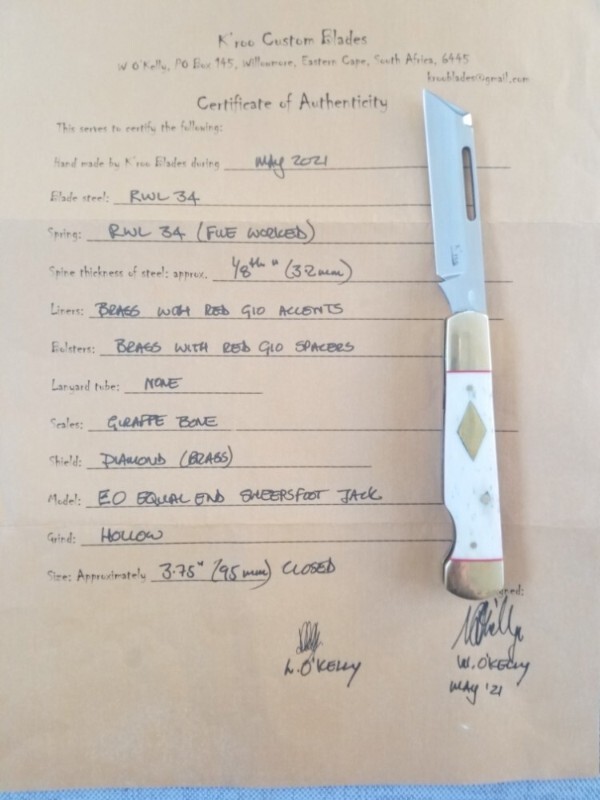 K'roo Custom Blades
W O'Kelly, PO Box 145, Willowmore, Eastern Cape, South Africa, 6445
krooblades@gmail.com
Certificate of Authenticity
This serves to certify the following:
Hand made by K'roo Blades during MAY 2021
Blade steel: RWL 34
Spring: RWL 34 (FILE WORKED)
Spine thickness of steel: approx. 1/8th " (3.2mm)
Liners: BRASS WITH RED G10 ACCENTS
Bolsters: BRASS WITH RED G10 SPACERS
Lanyard tube: NONE
Scales: GIRAFFE BONE
Shield: DIAMOND (BRASS)
Model: EO EQUAL END SHEERSFOOT JACK
Grind: HOLLOW
Size: Approximately 3.75" (95mm) CLOSED
L. O'KELLY
W. O'KELLY
MAY '21